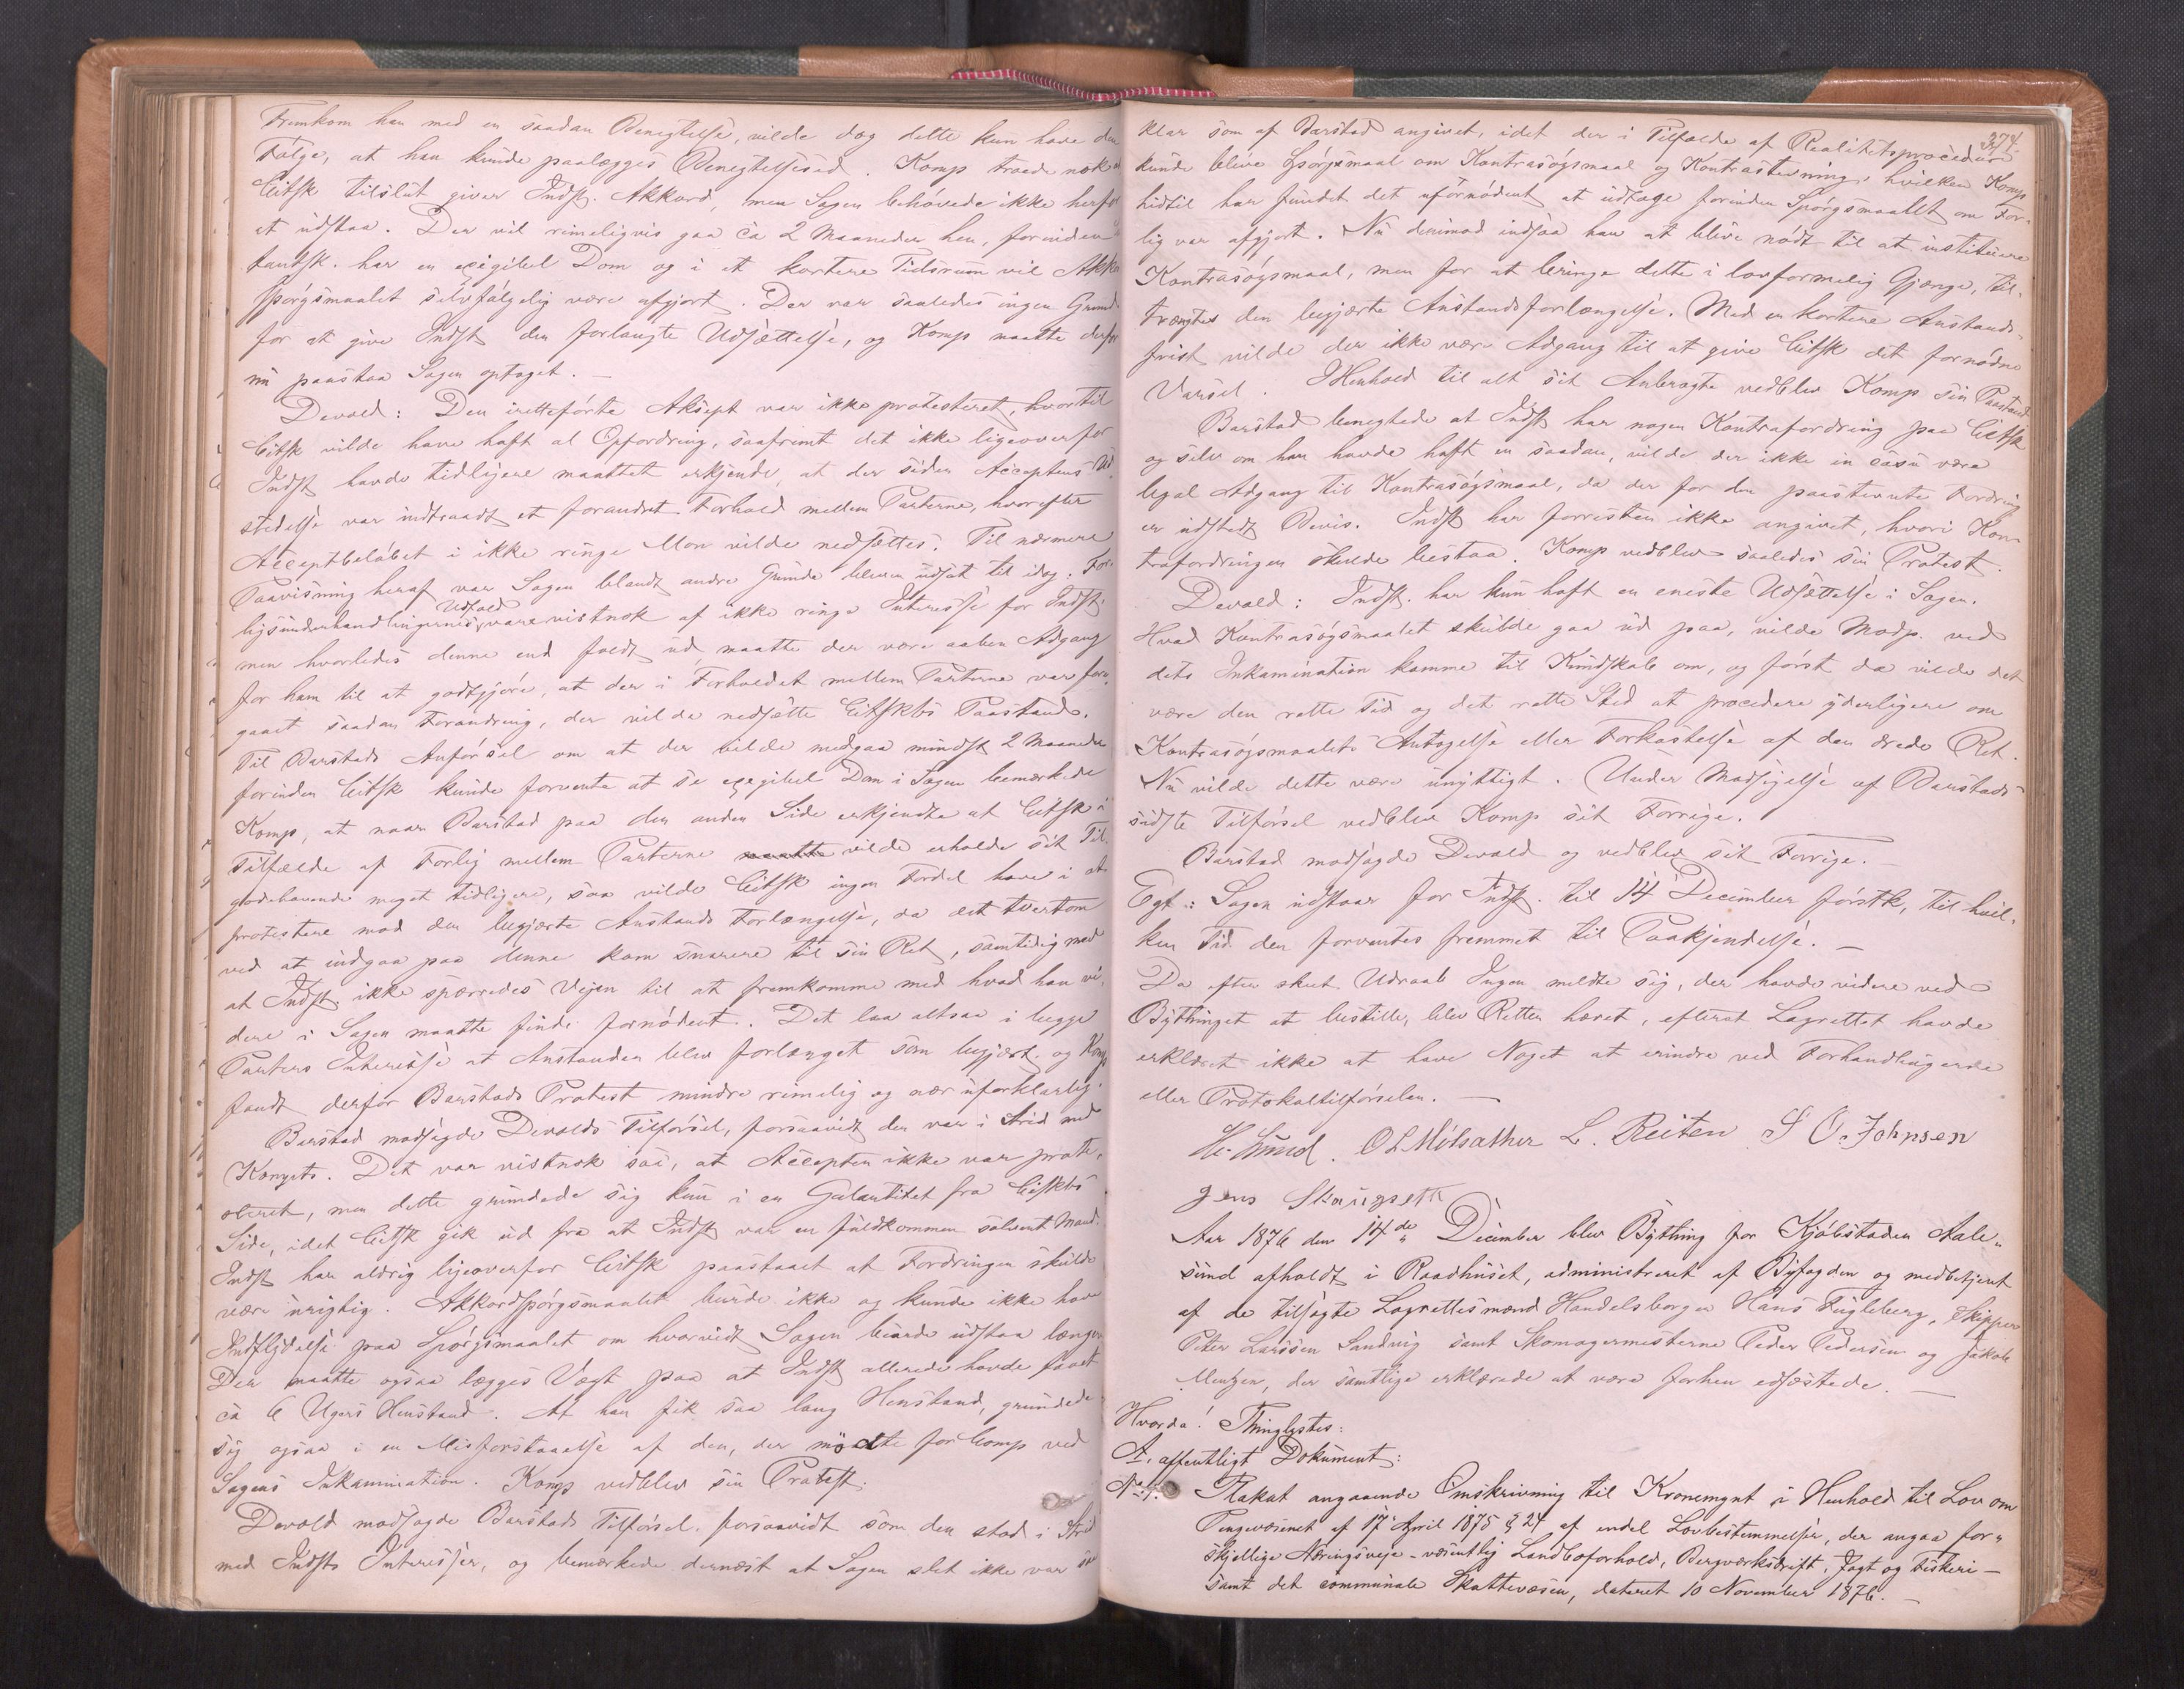 Fremkom han med en saadan Benegtelse, vilde dog dette kun have den
Følge, at han kunde paalægges Benegtelsesed. Komp troede nok at
Citsk tilslut giver Indst. Akkord, men Sagen behøvede ikke herfor
at udstaa. Der vil rimeligvis gaa ca 2 Maaneder hen, forinden
har en exigibel Dom og i et kortere Tidsrum vil Akkord
spørgsmaalet selvfølgelig være afgjort. Der var saaledes ingen Grund
for at give Indst den forlangte Udsættelse, og Komp maatte derfor
nu paastaa Sagen optaget. —
Devold: Den iretteførte Aksept var ikke protesteret, hvortil
Citsk vilde have haft al Opfordring, saafremt det ikke ligeoverfor
Indst havde tidligere maattet erkjende, at der siden Acceptens Ud
stedelse var indtraadt et forandret Forhold mellem Parterne, hvorefter
Acceptbeløbet i ikke ringe Mon vilde nedsættes. Til nærmere
Paavisning heraf var Sagen blandt andre Grunde bleven udsat til idag. For-
ligsunderhandlingernes Udfald vare vistnok af ikke ringe Interesse for Indst.
men hvorledes denne end faldt ud maatte der være aaben Adgang
for ham til at godtgjøre, at der i Forholdet mellem Parterne var fore-
gaaet saadan Forandring, der vilde nedsætte Citskts Paastand.
Til Barstads Anførsel om at der vilde medgaa mindst 2 Maaneder
forinden Citsk kunde forvente at se exegibel Dom i Sagen bemærkede
Komp, at naar Barstad paa den anden Side erkjendte at Citsk i
Tilfælde af Forlig mellem Parterne maatte vilde erholde sit Til-
godehavende meget tidligere, saa vilde Citsk ingen Fordel have i at
protestere mod den begjærte Anstands Forlængelse, da det tvertom
ved at indgaa paa denne kom snarere til sin Ret, samtidig med
at Indst. ikke spærredes Vejen til at fremkomme med hvad han vi-
dere i Sagen maatte finde fornødent. Det laa altsaa i begge
Parters Interesse at Anstanden blev forlænget som begjært og Komp
fandt derfor Barstads Protest mindre rimelig og nær uforklarlig.
Barstad modsagde Devolds Tilførsel, forsaavidt den var i Strid med
Komps. Det var vistnok saa, at Accepten ikke var prote-
steret, men dette grundede sig kun i en Galantitet fra Citskts
Side, idet Citsk gik ud fra at Indst var en fuldkommen solvent Mand.
Indst har aldrig ligeoverfor Citsk paastaaet at Fordringen skulde
være urigtig. Akkordspørgsmaalet burde ikke og kunde ikke have
Indflydelse paa Spørgsmaalet om hvorvidt Sagen burde udstaa længer
Der maatte ogsaa lægges Vægt paa at Indst allerede havde faaet
ca 6 Ugers Henstand. At han fik saa lang Henstand, grundede
sig ogsaa i en Misforstaaelse af den, der mødte for Comp ved
Sagens Inkamination. Komp vedblev sin Protest.
Devold modsagde Barstads Tilførsel, forsaavidt som den stod i Strid
med Indsts Interesser, og bemærkede dernæst at Sagen slet ikke var saa
374.
klar som af Barstad angivet, idet der i Tilfælde af Realitetsprocedure
kunde blive Spørgsmaal om Kontrasøgsmaal og Kontrastevning, hvilken Komp
hidtil har fundet det ufornødent at udtage forinden Spørgsmaalet om For-
lig var afgjort. Nu derimod indsaa han at blive nødt til at instituere
Kontrasøgsmaal, men for at bringe dette i lovformelig Gjænge, til-
trængtes den begjærte Anstandsforlængelse. Med en kortere Anstands-
frist vilde der ikke være Adgang til at give Citsk det fornødne
Varsel. I Henhold til alt sit Anbragte vedblev Komp sin Paastand
Barstad benegtede at Indst har nogen Kontrafordring paa Citsk
og selv om han havde haft en saadan, vilde der ikke in casu være
legal Adgang til Kontrasøgsmaal, da der for den paastevnte Fordring
er udstedt Bevis. Indst har forresten ikke angivet, hvori Kon-
trafordringen skulde bestaa. Komp vedblev saaledes sin Protest.
Devold: Indst. har kun haft en eneste Udsættelse i Sagen.
Hvad Kontrasøgsmaalet skulde gaa ud paa, vilde Modp. ved
dets Inkamination komme til Kundskab om, og først da vilde det
være den rette Tid og det rette Sted at procedere yderligere om
Kontrasøgsmaalets Antagelse eller Forkastelse af den ærede Ret.
Nu vilde dette være unyttigt. Under Modsigelse af Barstads
sidste Tilførsel vedblev Komp sit Forrige.
Barstad modsagde Devold og vedblev sit Forrige. —
Egt.: Sagen udstaar for Indst. til 14 December førstk, til hvil-
ken Tid den forventes fremmet til Paakjendelse. —
Da efter skeet Udraab Ingen meldte sig, der havde videre ved
Bythinget at bestille, blev Retten hævet, efterat Lagrettet havde
erklæret ikke at have Noget at erindre ved Forhandlingerne
eller Protokoltilførselen. —
L. Reiten S O. Johnsen
Jens
Aar 1876 den 14de December blev Bything for Kjøbstaden Aale-
sund afholdt i Raadhuset, administreret af Byfogden og medbetjent
af de tilsagte Lagrettesmænd Handelsborger Hans Fugleberg, Skipper
Peter Larssen Sandvig samt Skomagermesterne Peder Pedersen og Jakob
Mentzen, der samtlige erklærede at være forhen edfæstede. —
Hvorda! Thinglystes:
A. offentligt Dokument:
No 1. Plakat angaaende Omskrivning til Kronemynt i Henhold til Lov om
Pengevæsenet af 17 April 1875 § 24 af endel Lovbestemmelser, der angaa for-
skjellige Næringsveje - væsentlig Landboforhold, Bergværksdrift, Jagt og Fiskeri —
samt det communale Skattevæsen, dateret 10 November 1876. —